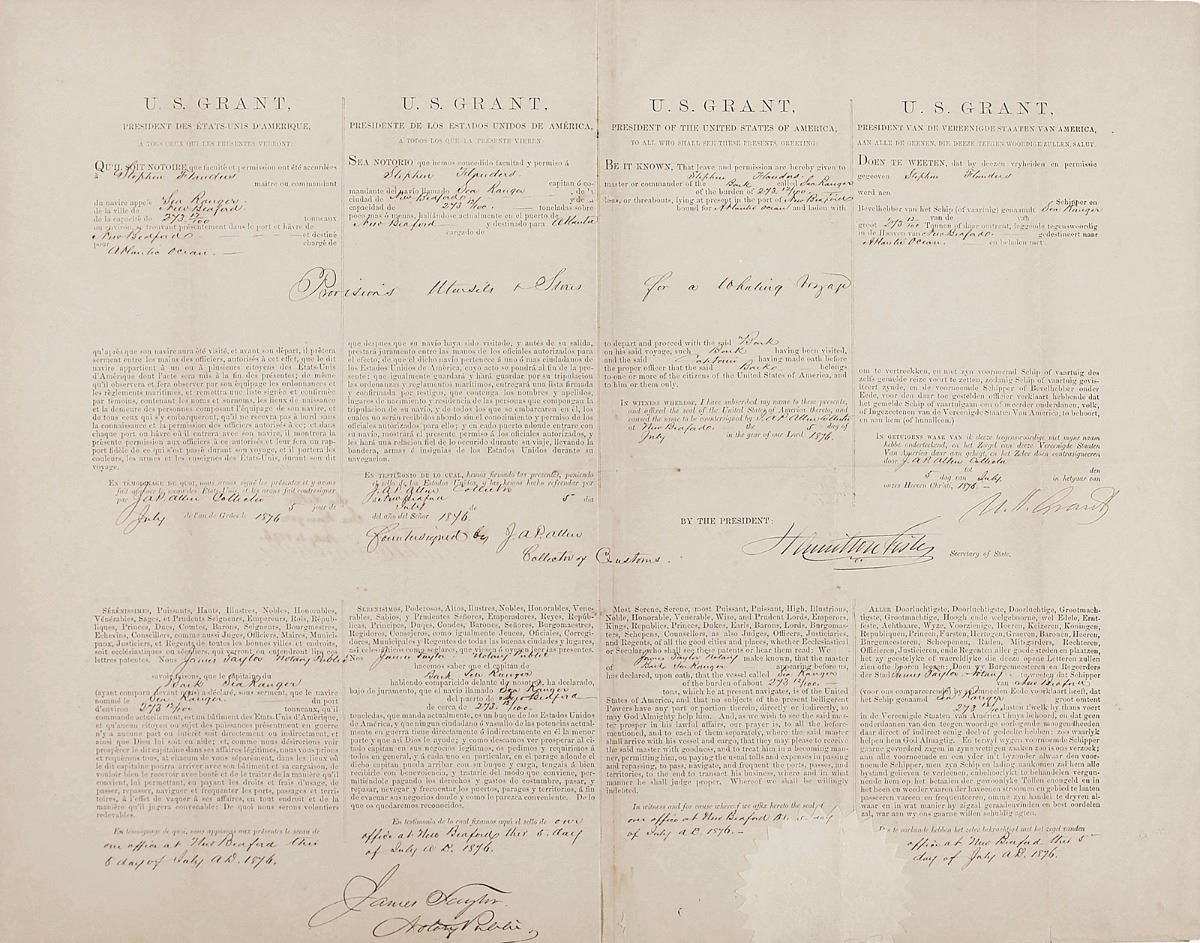 U. S. GRANT,
PRESIDENT DES ÉTATS-UNIS D'AMERIQUE,
À TOUS CEUX QUI LES PRESENTES VERRONT.
QU'IL SOIT NOTOIRE que faculté et permission ont été accordées
à Stephen Flanders
maitre ou commandant
du navire appelé Sea Ranger
de la ville de New Bedford
de la capacité de 273 12/100 tonneaux
ou environ, se trouvant présentement dans le port et hâvre de
New Bedford et destiné
pour chargé de
Atlantic Ocean.
U. S. GRANT,
PRESIDENTE DE LOS ESTADOS UNIDOS DE AMÉRICA,
A TODOS LOS QUE LA PRESENTE VIEREN:
SEA NOTORIO que hemos concedido facultad y permiso á
Stephen Flanders capitan ó co-
mandante del navío llamado Sea Ranger de la
ciudad de New Bedford y de
capacidad de 273 12/100 toneladas sobre
poco mas ó menos, hallándose actualmente en el puerto de
New Beaford y destinado para Atlantic
cargado de
U. S. GRANT,
PRESIDENT OF THE UNITED STATES OF AMERICA,
TO ALL WHO SHALL SEE THESE PRESENTS, GREETING:
BE IT KNOWN, That leave and permission are hereby given to
Stephen Flanders
master or commander of the Bark called Sea Ranger
of the burden of 273 12/100
tons, or thereabouts, lying at present in the port of New Beaford
bound for Atlantic Ocean and laden with
U. S. GRANT,
PRESIDENT VAN DE VEREENIGDE STAATEN VAN AMERICA,
AAN ALLE DE GEENEN, DIE DEEZE TEEGEN WOORDIGE ZULLEN, SALUT.
DOEN TE WEETEN, dat by deezen vryheiden en permissie
gegeeven Stephen Flanders
werd aen
Schipper en
Bevelhebber van het Schip (of vaartuig) genaamdt Sea Ranger
van de
groot 273 12/100 Tonnen of daar omtrent, leggende tegenswoordig
in de Haaven van New Beaford gedestineert naar
Atlantic Ocean. en beladen met
Provisions Utensils & Stores for a Whaling Voyage
qu'après que son navire aura été visité, et avant son départ, il prêtera
serment entre les mains des officiers, autorisés à cet effet, que le dit
navire appartient à un ou à plusieurs citoyens des Etats-Unis
d'Amérique dont l'acte sera mis à la fin des présentes; de même
qu'il observera et fera observer par son équipage les ordonnances et
les règlements maritimes, et remettra une liste signée et confirmée
par témoins, contenant les noms et surnoms, les lieux de naissance
et la demeure des personnes composant l'équipage de son navire, et
de tous ceux qui s'y embarqueront, qu'il ne recevra pas à bord sans
la connaissance et la permission des officiers autorisés à ce; et dans
chaque port ou hâvre où il entrera avec son navire, il montrera la
présente permission aux officiers à ce autorisés et leur fera un rap-
port fidèle de ce qui s'est passé durant son voyage, et il portera les
couleurs, les armes et les enseignes des Etats-Unis, durant son dit
voyage.
EN TÉMOIGNAGE DE QUOI, nous avons signé les présentes et y avons
fait apposer le sceau des Etats-Unis, et les avons fait contresigner
par J A P Allen Collector
5 jour de
July de l'an de Grâce le 1876
que despues que su navío haya sido visitado, y antes de su salida,
prestará juramento entre las manos de los oficiales autorizados para
el efecto, de que el dicho navío pertenece á uno ó mas ciudadanos de
los Estados Unidos de América, cuyo acto se pondrá al fin de la pre-
sente; que igualmente guardará y hará guardar por su tripulacion
las ordenanzas y reglamentos marítimos, entregará una lista firmada
y confirmada por testigo, que contenga los nombres y apelidos,
lugares de nacimiento y residencia de las personas que compongan la
tripulacion de su navío, y de todos los que se embarcaren en él, los
cuales no serán recibidos abordo sin el conocimiento y permiso de los
oficiales autorizados para ello; y en cada puerto adonde entrare con
su navío, mostrará el presente permiso á los oficiales autorizados, y
hará una relacion fiel de lo ocorrido durante su viaje, llevando la
bandera, armas é insignias de los Estados Unidos durante su
navegacion.
EN TESTIMONIO DE LO CUAL, hemos firmado las presentes, poniendo
el sello de los Estados Unidos, y las hemos hecho refrendar por
J A P Allen Collector
New Beaford 5 dia
July de
del año del Señor 1876.
Countersigned by J A P Allen
Collector of Customs.
to depart and proceed with the said Bark
on his said voyage, such Bark having been visited,
and the said having made oath before
the proper officer that the said Bark belongs
to one or more of the citizens of the United States of America, and
to him or them only.
IN WITNESS WHEREOF, I have subscribed my name to these presents,
and affixed the seal of the United States of America thereto, and
caused the same to be countersigned by J A P Allen Collector
at New Beaford the 5 day of
July in the year of our Lord 1876.
BY THE PRESIDENT:
Hamilton Fish
Secretary of State.
om te vertreekken, en met zyn voornoemd Schip of vaartuig des
zelfs gemelde reize voort te zetten, zodanig Schip of vaartuig gevis-
iteert zynde, en de voornoemde Schipper of Bevelhebber onder
Eede, voor den daar toe gestelden officier verklaart hebbende dat
het gemelde Schip of vaartuig aan een of meerder onderdaanen, volk,
of Ingezetenen van de Vereenigde Staaten van America, toebehoort,
en aan hem (of hun) alleen.
IN GETUIGENIS WAAR VAN ik deeze tegenwoordige met myne naam
hebbe ondertekend, en het Zeegel van deeze Vereenigde Staaten
van America daar aan gehegt, en het Zelve doen contrasigneren
door J A P Allen Collector
tot den
5 dag van July. in het jaar van
onzes Heeren Christi, 1876 -
U. S. Grant
SÉRÉNISSIMES, Puissants, Hauts, Illustres, Nobles, Honorables,
Vénérables, Sages, et Prudents Seigneurs, Empereurs, Rois, Répub-
liques, Princes, Ducs, Comtes, Barons, Seigneurs, Bourgmestres,
Echevins, Conseillers, comme aussi Juges, Officiers, Maires, Munici-
paux, Justiciers, et Regents de toutes les bonnes villes et endroits,
soit ecclésiastiques ou séculiers, qui verront, ou entendront lire ces
lettres patentes. Nous James Taylor Notary Public
savoir faisons, que le capitaine du
Bark Sea Ranger
(ayant comparu devant nous) a déclaré, sous serment, que le navire
nommé le Sea Ranger du port
d'environ 273 12/100 tonneaux, qu'il
commande actuellement, est un bâtiment des Etats-Unis d'Amérique,
et qu'aucun citoyen ou sujet des puissances présentement en guerre
n'y a aucune part ou intérêt soit directement ou indirectement, et
ainsi que Dieu lui soit en aide; et, comme nous désirerions voir
prospérer le dit capitaine dans ses affaires légitimes, nous vous prions
et requérons tous, et chacun de vous séparément, dans les lieux où
le dit capitaine pourra arriver avec son bâtiment et sa cargaison, de
vouloir bien le recevoir avec bonté et de le traiter de la manière qu'il
convient, lui permettant, en payant les droits et frais d'usage, de
passer, repasser, naviguer et fréquenter les ports, passages et terri-
toires, à l'effet de vaquer à ses affaires, en tout endroit et de la
manière qu'il jugera convenable: De quoi nous serons volontiers
redevables.
En témoignage de quoi, nous apposons aux présentes le sceau de
our office at New Beaford this
5 day of July A.D. 1876.
SERENISIMOS, Poderosos, Altos, Ilustres, Nobles, Honorables, Vene-
rables, Sabios, y Prudentes Señores, Emperadores, Reyes, Repúb-
licas, Principes, Duques, Condes, Barones, Señores, Burgomaestres,
Regidores, Consejeros, como igualmente Jueces, Oficiales, Corregi-
dores, Municipales y Regentes de todas las buenas ciudades y lugares,
así celesiásticos como seglares, que viesen ó oyesen leer las presentes.
Nos James Taylor Notary Public
hacemos saber que el capitan de
Bark Sea Ranger
habiendo comparecido delante de nosotros, ha declarado,
bajo de juramento, que el navío llamado Sea Ranger
del puerto de New Bedford
de cerca de 273 12/100.
toneladas, que manda actualmente, es un buque de los Estados Unidos
de América, y que ningun ciudadano ó vasallo de las potencias actual-
mente en guerra tiene directamente ó indirectamente en él la menor
parte y que así Dios le ayude; y como deseamos ver prosperar al ci-
tado capitan en sus negocios legítimos, os pedimos y requirimos á
todos en general, y á cada uno en particular, en el parage adonde el
dicho capitan pueda arribar con su buque y carga, tengais á bien
recibirle con benevolencia, y tratarle del modo que conviene, per-
mitiéndole pagando los derechos y gastos de costumbre, pasar,
repasar, nevegar y frecuentar los puertos, parages y territorios, á fin
de evacuar sus negocios donde y como le parezca conveniente. De lo
que os quedaremos reconocidos.
En testimonio de la cual fixamos aquí el sello de our
office at New Beaford this 5. day
of July A D. 1876.
James Taylor
Notary Public
Most Serene, Serene, most Puissant, Puissant, High, Illustrious,
Noble, Honorable, Venerable, Wise, and Prudent Lords, Emperors,
Kings, Republics, Princes, Dukes, Earls, Barons, Lords, Burgomas-
ters, Schepens, Counselors, as also Judges, Officers, Justiciaries,
and Regents, of all the good cities and places, whether Ecclesiastical
or Secular, who shall see these patents or hear them read: We
James Taylor Notary make known, that the master
of Bark Sea Ranger appearing before us,
has declared, upon oath, that the vessel called Sea Ranger
of the burden of about 273 12/100
tons, which he at present navigates, is of the United
States of America, and that no subjects of the present belligerent
Powers have any part or portion therein, directly or indirectly, so
may God Almighty help him. And, as we wish to see the said mas-
ter prosper in his lawful affairs, our prayer is, to all the before
mentioned, and to each of them separately, where the said master
shall arrive with his vessel and cargo, that they may please to receive
the said master with goodness, and to treat him in a becoming man-
ner, permitting him, on paying the usual tolls and expenses in passing
and repassing, to pass, navigate, and frequent the ports, passes, and
territories, to the end to transact his business, where and in what
manner he shall judge proper. Whereof we shall be willingly
indebted.
In witness and for cause whereof we affix hereto the seal of
our office at New Beaford this 5. day
of July A D. 1876. -
ALLER Doorluchtigste, Doorluchtigste, Doorluchtige, Grootmach-
tigste, Grootmachtige, Hoogh ende welgeboorne, wel Edele, Ernt-
feste, Achtbaare, Wyze, Voorzienige, Heeren, Keizeren, Koningen,
Republiquen, Princen, Fursten, Hertogen, Graeven, Baronen, Heeren,
Burgemeesteren, Schoepenen, Raden, Mitsgarders, Rechteren,
Officieren, Justicieren, ende Regenten aller goede steden en plaatsen,
het zy geestelyke of waereldlyke die deeze opene Letteren zullen
zien ofte hooren leezen: Doen wy Burgermeesteren en Regeerders
der Stad James Taylor Notary te weeten, dat de Schipper
van New Bedford
(voor ons compareerende) by solemnelen Eede voorklaart heeft, dat
het Schip genaamd Sea Ranger groot omtent
273 12/100 lasten t'welk hy thans voert
in de Vereenigde Staaten van America t'huys behoord, en dat geen
onderdaanen van den teegen woordige oorlogende moogendheeden
daar direct of indirect eenig deel of gedeelte hebben: zoo waarlyk
helpen hem God Almagtig. En terwyl wy gaarne zoude zien voorn.
Schipper gaarne gevorderd zagen in zyne wettigen zaaken zoo is ons verzoek;
aan alle voornoemde en een yder in't byzonder alwaar den voor-
noemde Schipper, met zyn Schip en lading aankomen zal hem alle
bystand gelieven te verleenen, enbehoorlykt te behandelen vergun-
nende hem op het betaalen der gewoonlyke Tollen en ongeld en in
het heen en weeder vaaren der haveenen stroomen en gebied te laaten
passeeren vaaren en frequenteeren, omme zyn handel te dryven al-
waar en in wat manier hy zigzal geraadenvinden en best oordelen
zal, waar aan wy ons gaarne willen schuldig agten.
office at New Beaford this 5
day of July A D. 1876.